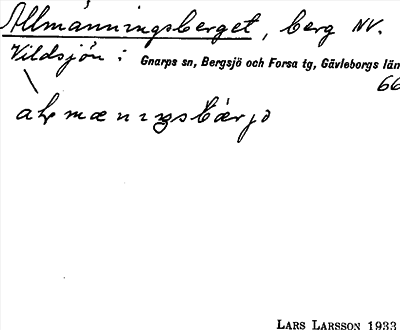 Allmänningsberget, berg NV.
Vildsjön: Gnarps sn, Bergsjö och Forsa tg, Gävleborgs län
66
LARS LARSSON 1933